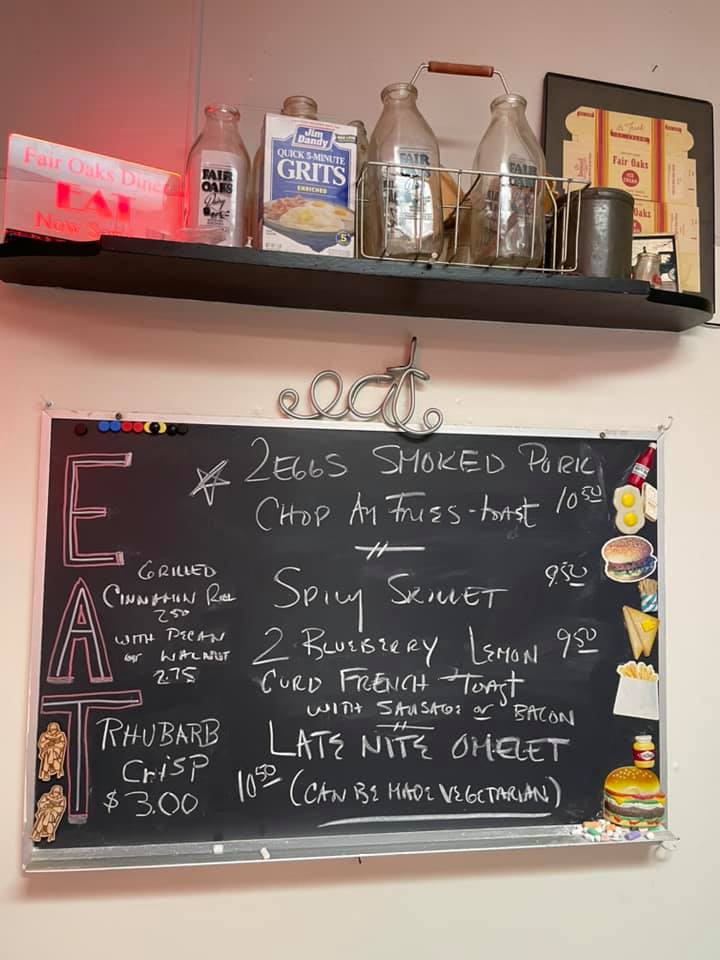 Fair Oaks Diner
EAT
FAIR
OAKS
Dairy
Jim
Dandy
QUICK 5-MINUTE
GRITS
ENRICHED
5
FAIR
FAIR
Fair Oaks
ICE
CREAM
Oaks
eat
EAT
☆ 2 EGGS SMOKED PORK
CHOP AM FRIES - toAST 10 50
SPICY SKILLET 9.50
2 BLUEBERRY LEMON 9 50
CURD FRENCH TOAST
WITH SAUSAGE or BACON
LATE NITE OMELET
10 50 (CAN BE MADE VEGETARIAN)
GRILLED
CINNAMIN ROLL
250
WITH PECAN
or WALNUT
275
RHUBARB
CRISP
$3.00